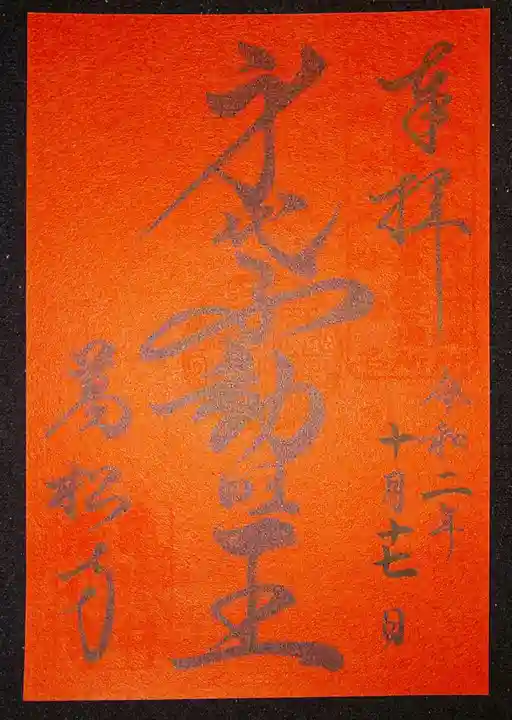 奉拝
令和二年
十月十七日
身代不動明王
萬松寺